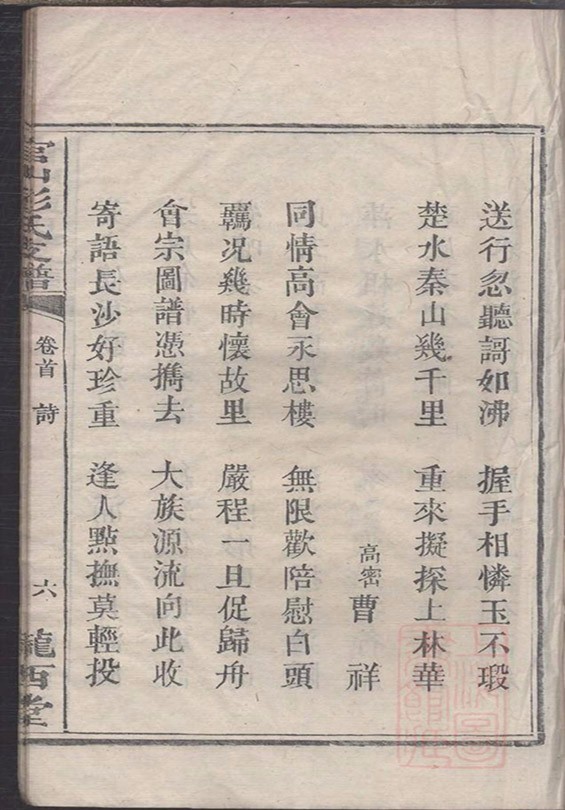 送行忽聽謌如沸　握手相憐玉不瑕
楚水秦山幾千里　重來擬探上林華
高密曹　祥
同情高會永思樓　無限歡陪慰白頭
羈况幾時懷故里　嚴程一旦促歸舟
㑹宗圖譜憑擕去　大族源流向此收
寄語長沙好珍重　逢人㸃撫莫輕投
官山彭氏支譜　卷首　詩　六　隴西堂